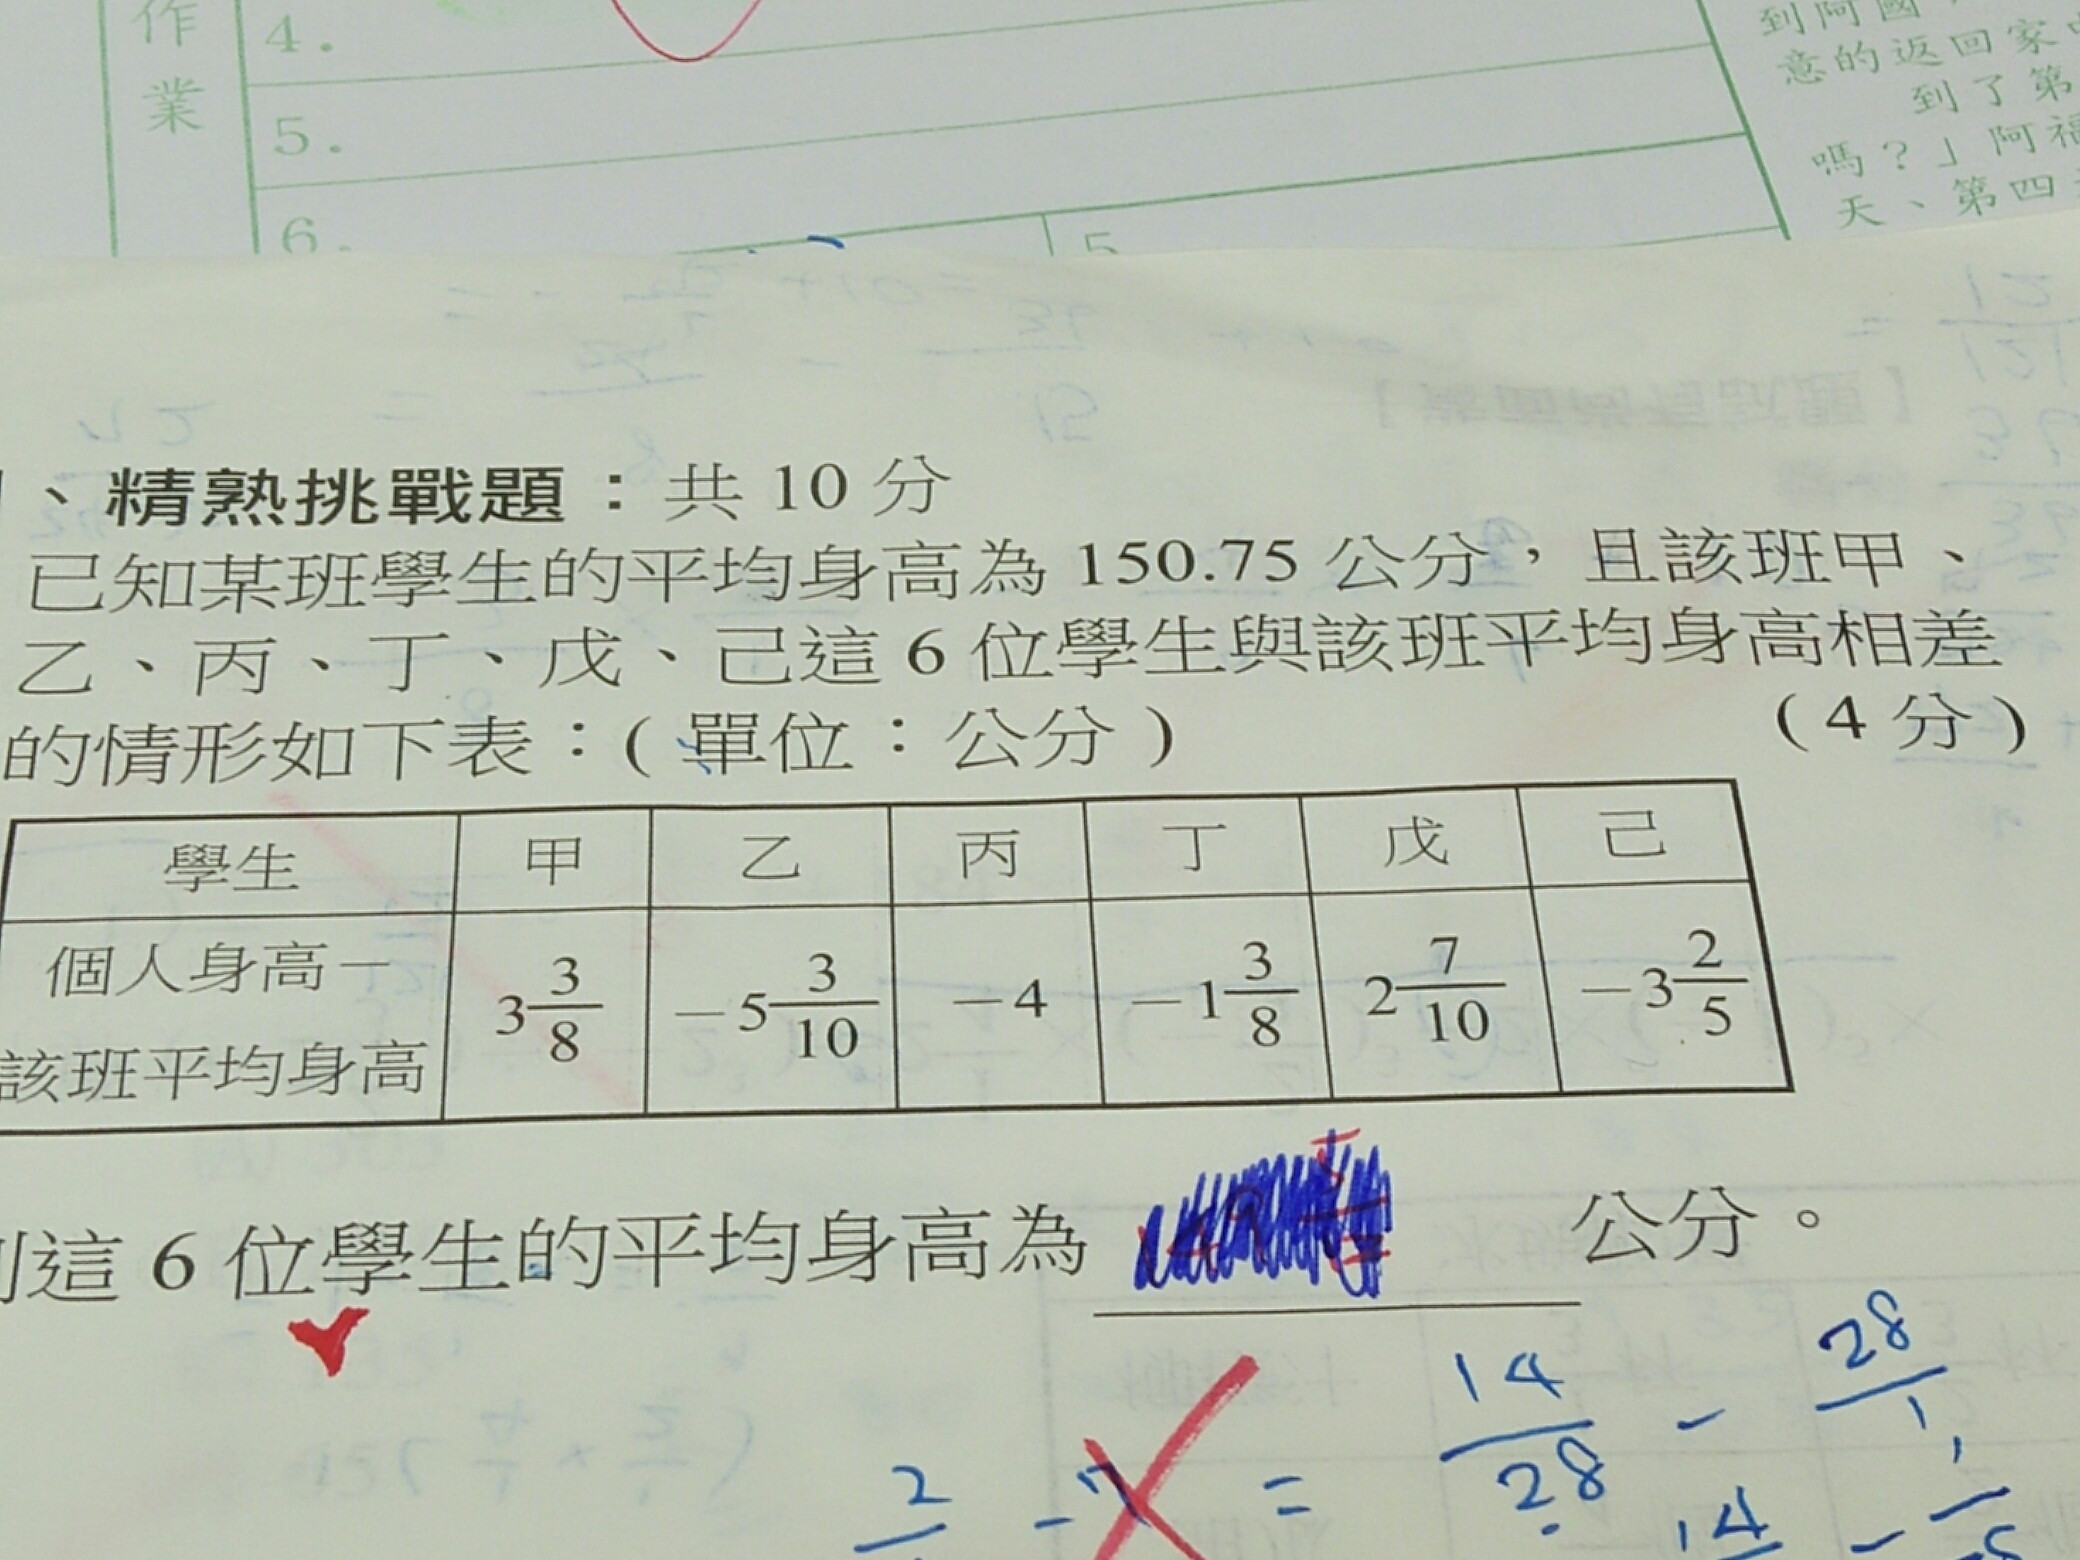 作
業
4.
5.
6.
5
到阿國
意的返回家
到了第
嗎？」阿福
天、第四
、精熟挑戰題：共 10 分
已知某班學生的平均身高為 150.75 公分，且該班甲、
乙、丙、丁、戊、己這 6 位學生與該班平均身高相差
的情形如下表：( 單位：公分 ) ( 4 分 )
學生 甲 乙 丙 丁 戊 己
個人身高－
該班平均身高 3 3/8 －5 3/10 －4 －1 3/8 2 7/10 －3 2/5
這 6 位學生的平均身高為 公分。
2 - 7 = 14/28 - 28/1
14 -